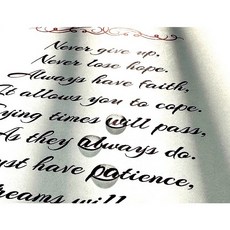 Never give up.
Never lose hope.
Always have faith,
It allows you to cope.
ying times will pass,
As they always do.
ust have patience,
reams will